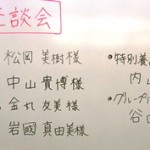 談会
松岡 美樹様
中山 貴博様
金丸 友美様
岩國 真由美様
・特別養
内山
・グループ
谷口